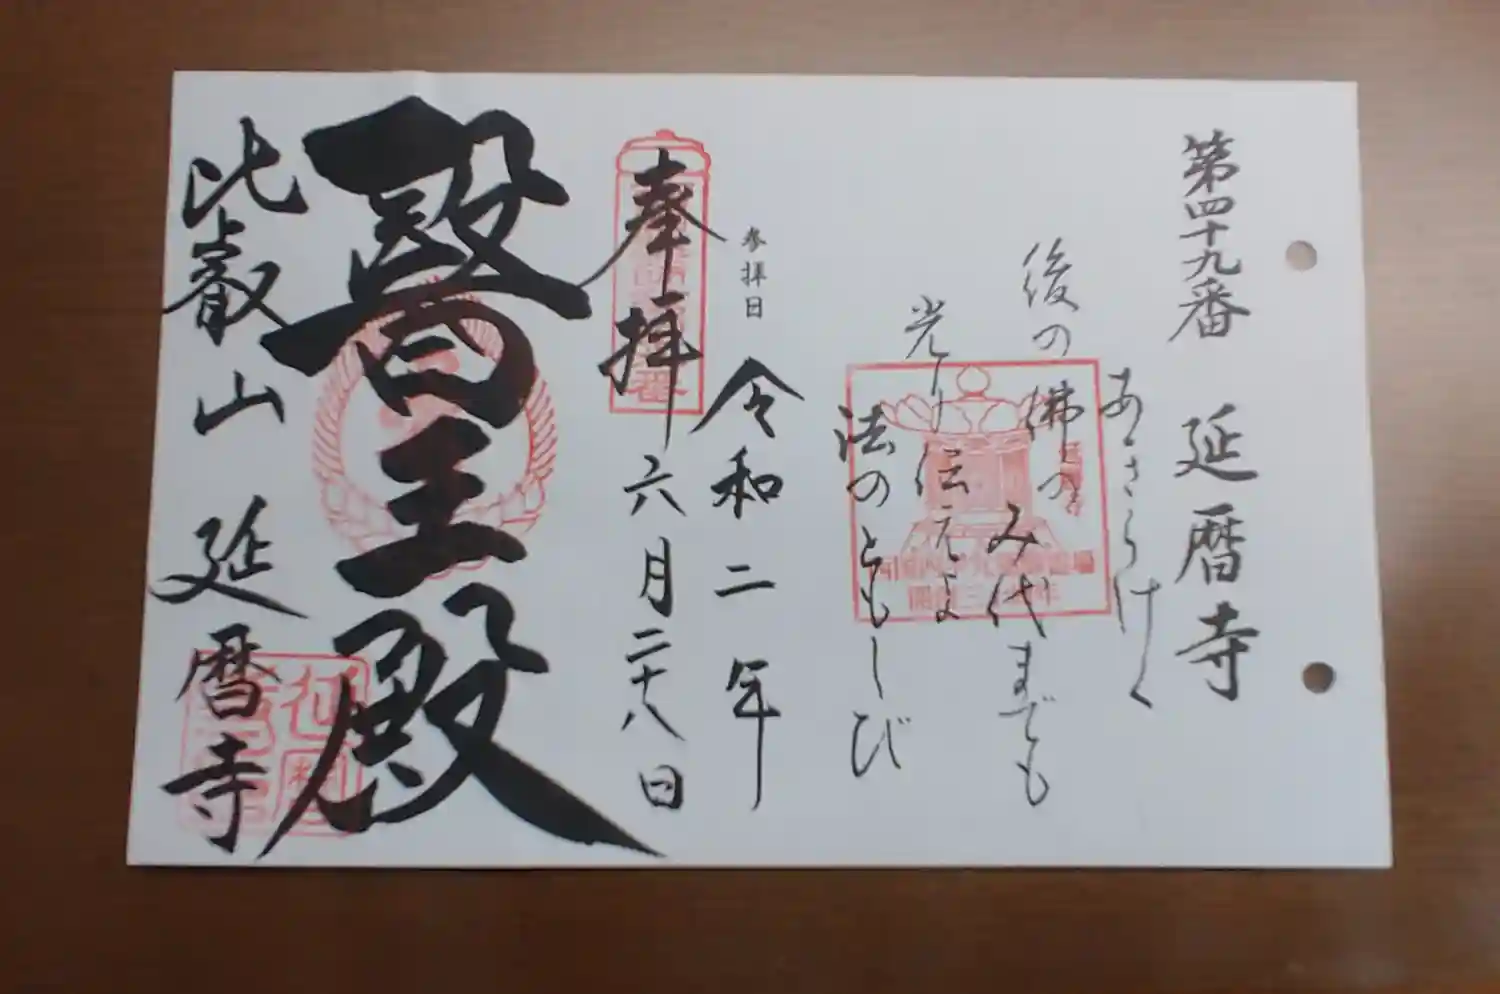 第四十九番 延暦寺
あきらけく
後の佛の
み代までも
光り伝えよ
法のともしび
参拝日
令和二年
六月二十八日
奉拝
醫王殿
比叡山 延暦寺